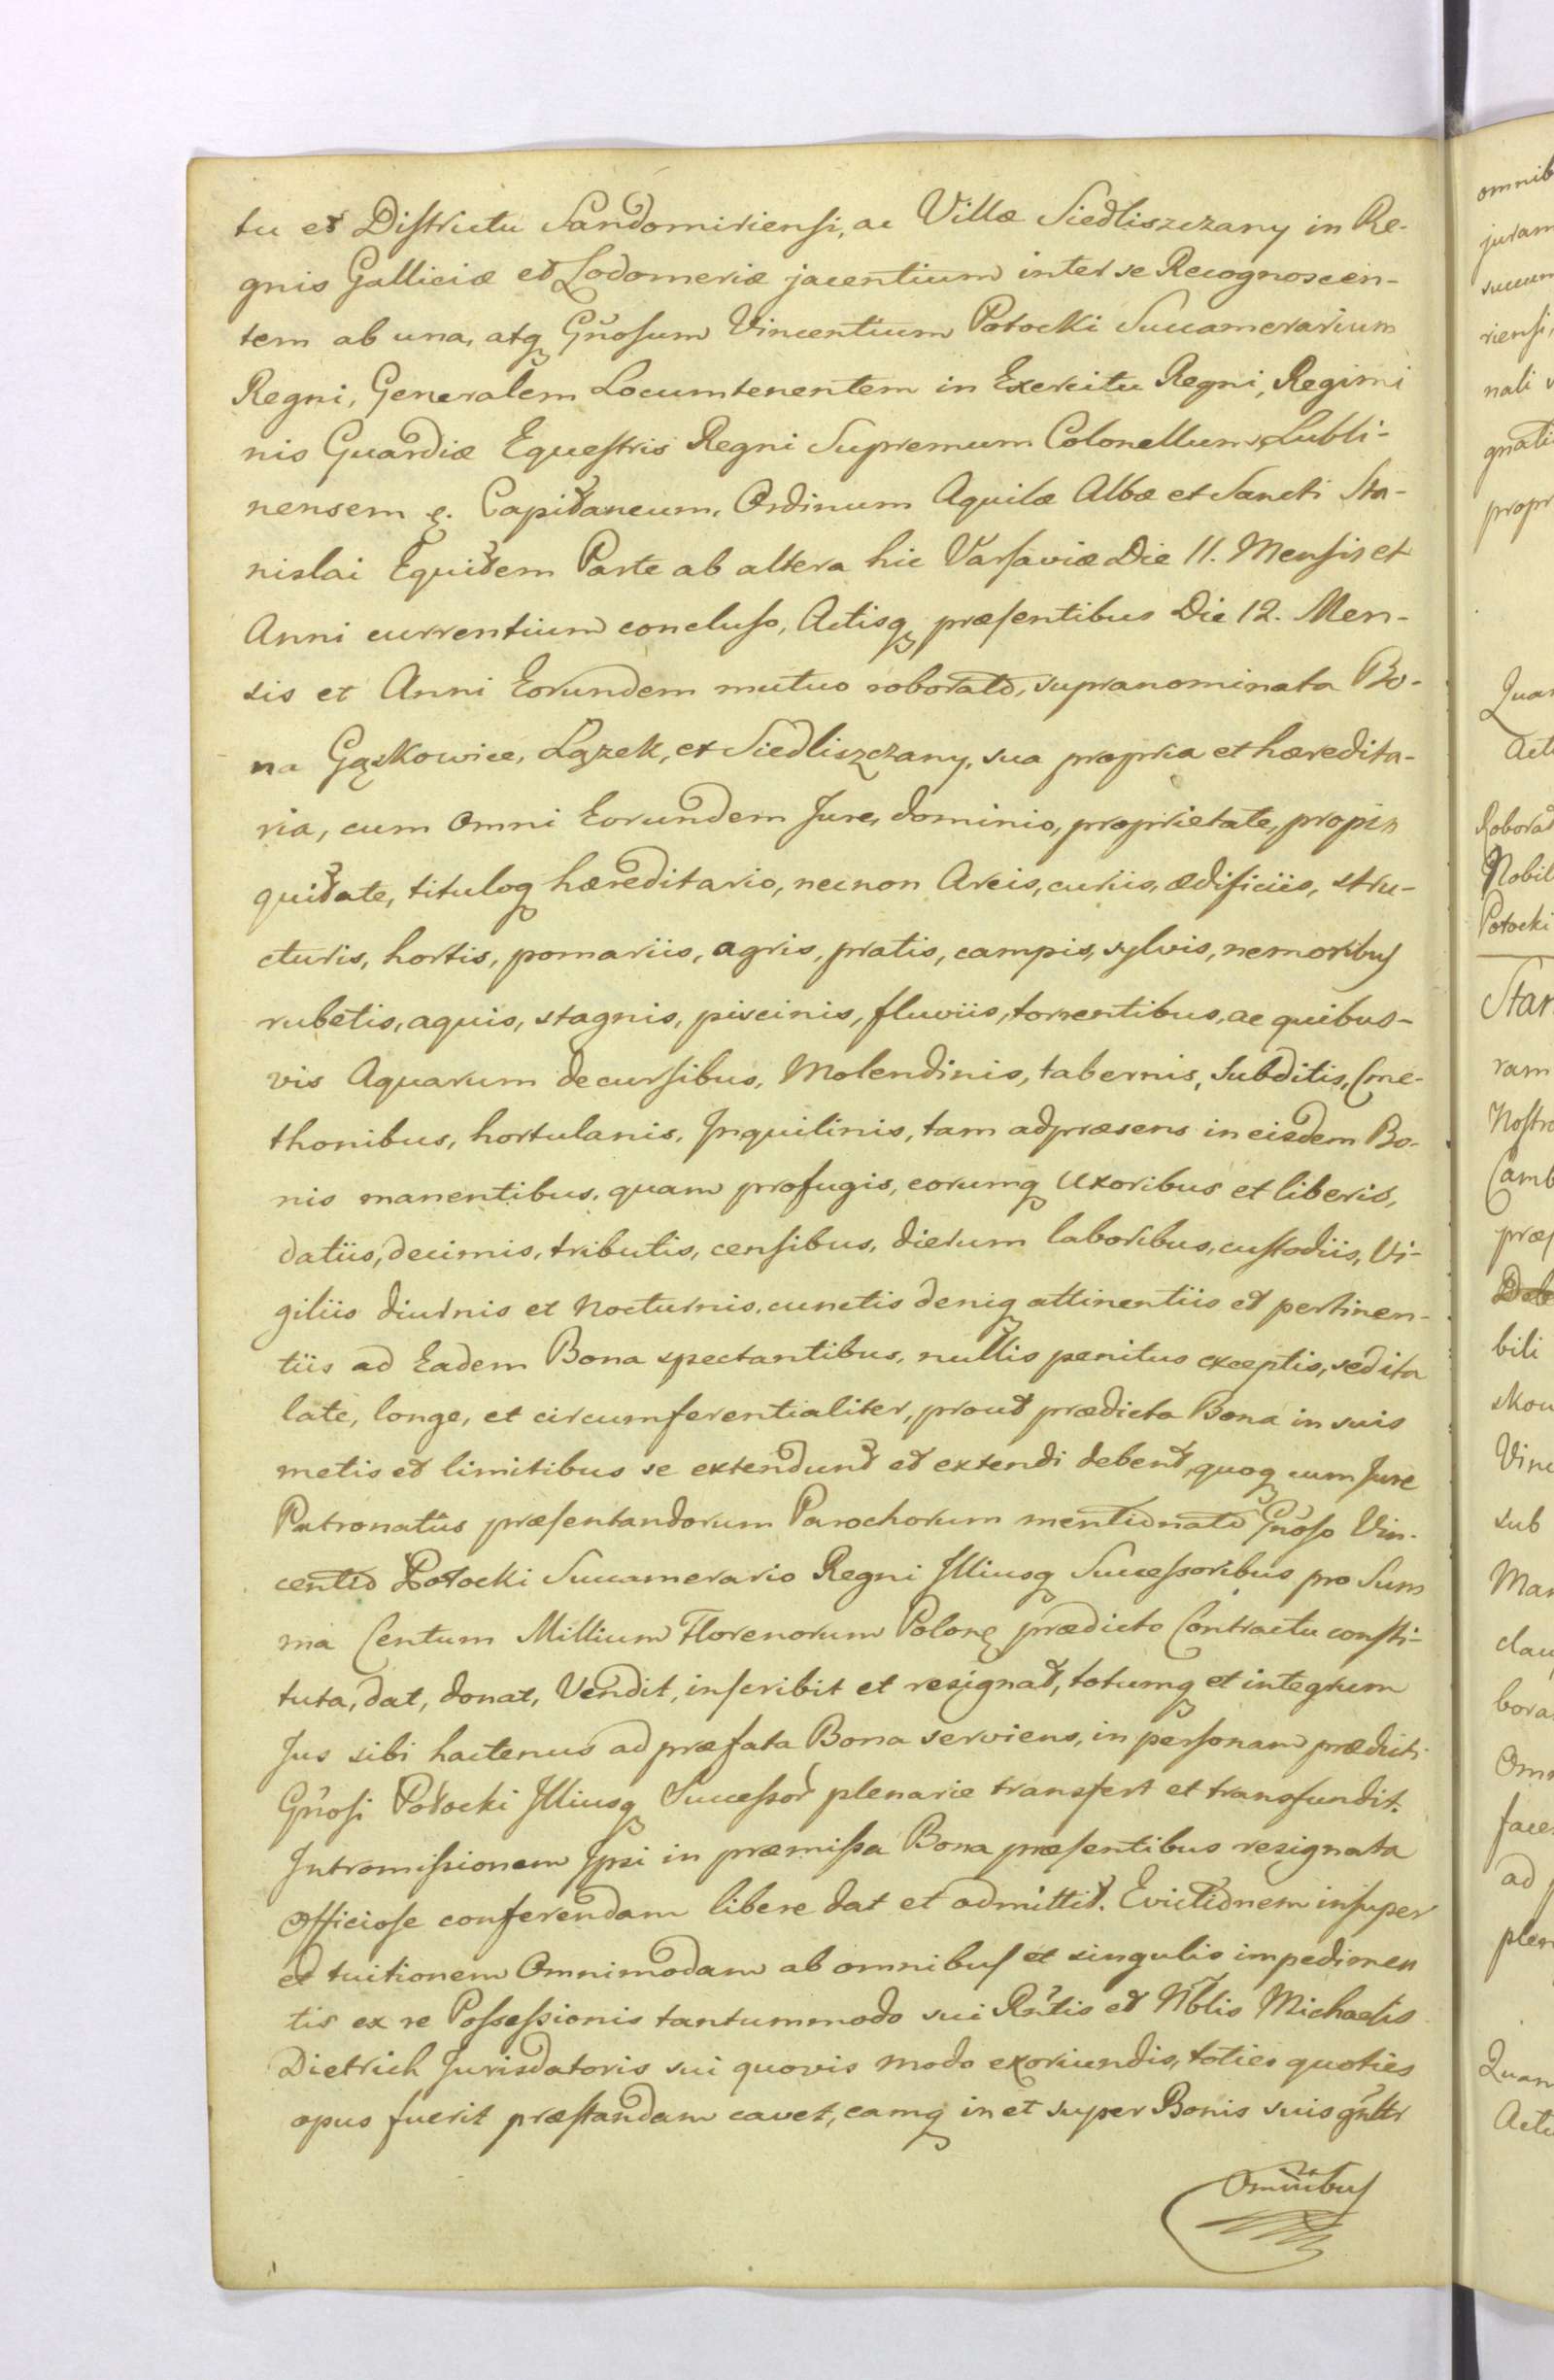 tu et Districtu Sandomiriensi, ac Villæ Siedliszczany in Re-
gnis Galliciæ et Lodomeriæ jacentium inter se Recognoscen-
tem ab una, atq Gñosum Vincentium Potocki Succamerarium
Regni, Generalem Locumtenentem in Exercitu Regni, Regimi
nis Guardiæ Equestris Regni Supremum Colonellum, Lubli-
nensem &. Capitaneum, Ordinum Aquilæ Albæ et Sancti Sta-
nislai Equitem Parte ab altera hic Varsaviæ Die 11. Mensis et
Anni currentium concluso, Actisq præsentibus Die 12. Men-
sis et Anni Eorundem mutuo roborato, supranominata Bo-
na Gąskowice, Lązek, et Siedliszczany, sua propria et hæredita-
ria, cum omni Eorundem Jure, dominio, proprietate, propin
quitate, tituloq hæreditario, necnon Arcis, curiis, ædificiis, stru-
cturis, hortis, pomariis, agris, pratis, campis, sylvis, nemoribus
rubetis, aquis, stagnis, piscinis, fluviis, torrentibus, ac quibus-
vis Aquarum decursibus, Molendinis, tabernis, Subditis, Cme-
thonibus, hortulanis, Inquilinis, tam adpræsens in eisdem Bo-
nis manentibus, quam profugis, eorumq Uxoribus et liberis,
datiis, decimis, tributis, censibus, dierum laboribus, custodiis, Vi-
giliis diurnis et nocturnis, cunctis deniq attinentiis et pertinen-
tiis ad Eadem Bona spectantibus, nullis penitus exceptis, sed ita
late, longe, et circumferentialiter, prout prædicta Bona in suis
metis et limitibus se extendunt et extendi debent, quoq cum Jure
Patronatûs præsentandorum Parochorum mentionato Gñoso Vin-
centio Potocki Succamerario Regni Illiusq Successoribus pro Sum
ma Centum Millium Florenorum Polonę prædicto Contractu consti-
tuta, dat, donat, Vendit, inscribit et resignat, totumq et integrum
Jus sibi hactenus ad præfata Bona serviens, in personam prædicti
Gñosi Potocki Illiusq Successor plenarie transfert et transfundit.
Intromissionem Ipsi in præmissa Bona præsentibus resignata
Officiose conferendam libere dat et admittit. Evictionem insuper
et tuitionem Omnimodam ab omnibus et singulis impedimen
tis ex re Possessionis tantummodo sui Rñtis et Nblis Michaelis
Dietrich Jurisdatoris sui quovis modo exoriundis, toties quoties
opus fuerit præstandam cavet, eamq in et super Bonis suis gñltr
Omnibus
omnib
juram
succum
riensi,
nali
gnati
propr
Quan
Act
Roborat
Nobil
Potocki
Star
ram
Nostr
Camb
præs
bili
skow
Vinc
sub
Man
clau
bora
Omn
face
ad
plen
Quan
Actu